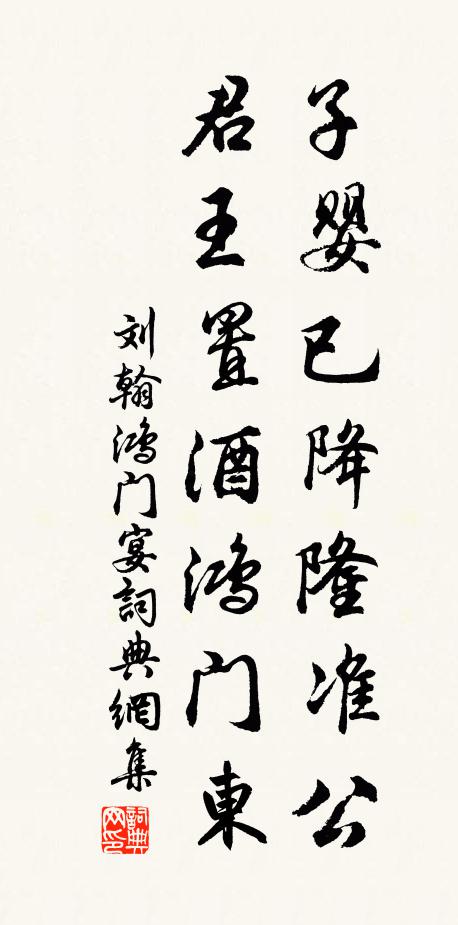 子嬰已降隆准公
君王置酒鸿门東
刘翰鸿门宴詞典網集
詞典網印